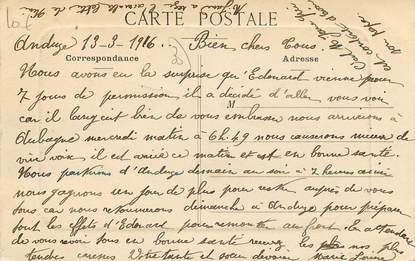 CARTE POSTALE
Anduze 13-3-1916. Bien chers Tous.
Correspondance
Adresse
Nous avons eu la surprise qu'Edouard vienne pour
7 jours de permission il a décidé d'aller vous voir
car il languit bien de vous embrasser nous arriverons à
M
Aubagne mercredi matin à 6h.49 nous causerons mieux de
vive voix il est arrivé ce matin et est en bonne santé.
Nous partirons d'Anduze demain au soir à 7 heures ainsi
nous gagnons un jour de plus pour rester auprès de vous
tous car nous retournerons dimanche à Anduze pour préparer
tout les effets d'Edouard pour remonter au front
de vous revoir tous en bonne santé recevez les nos plus
tendres caresses Votre tante et sœur dévouée Marie Louise